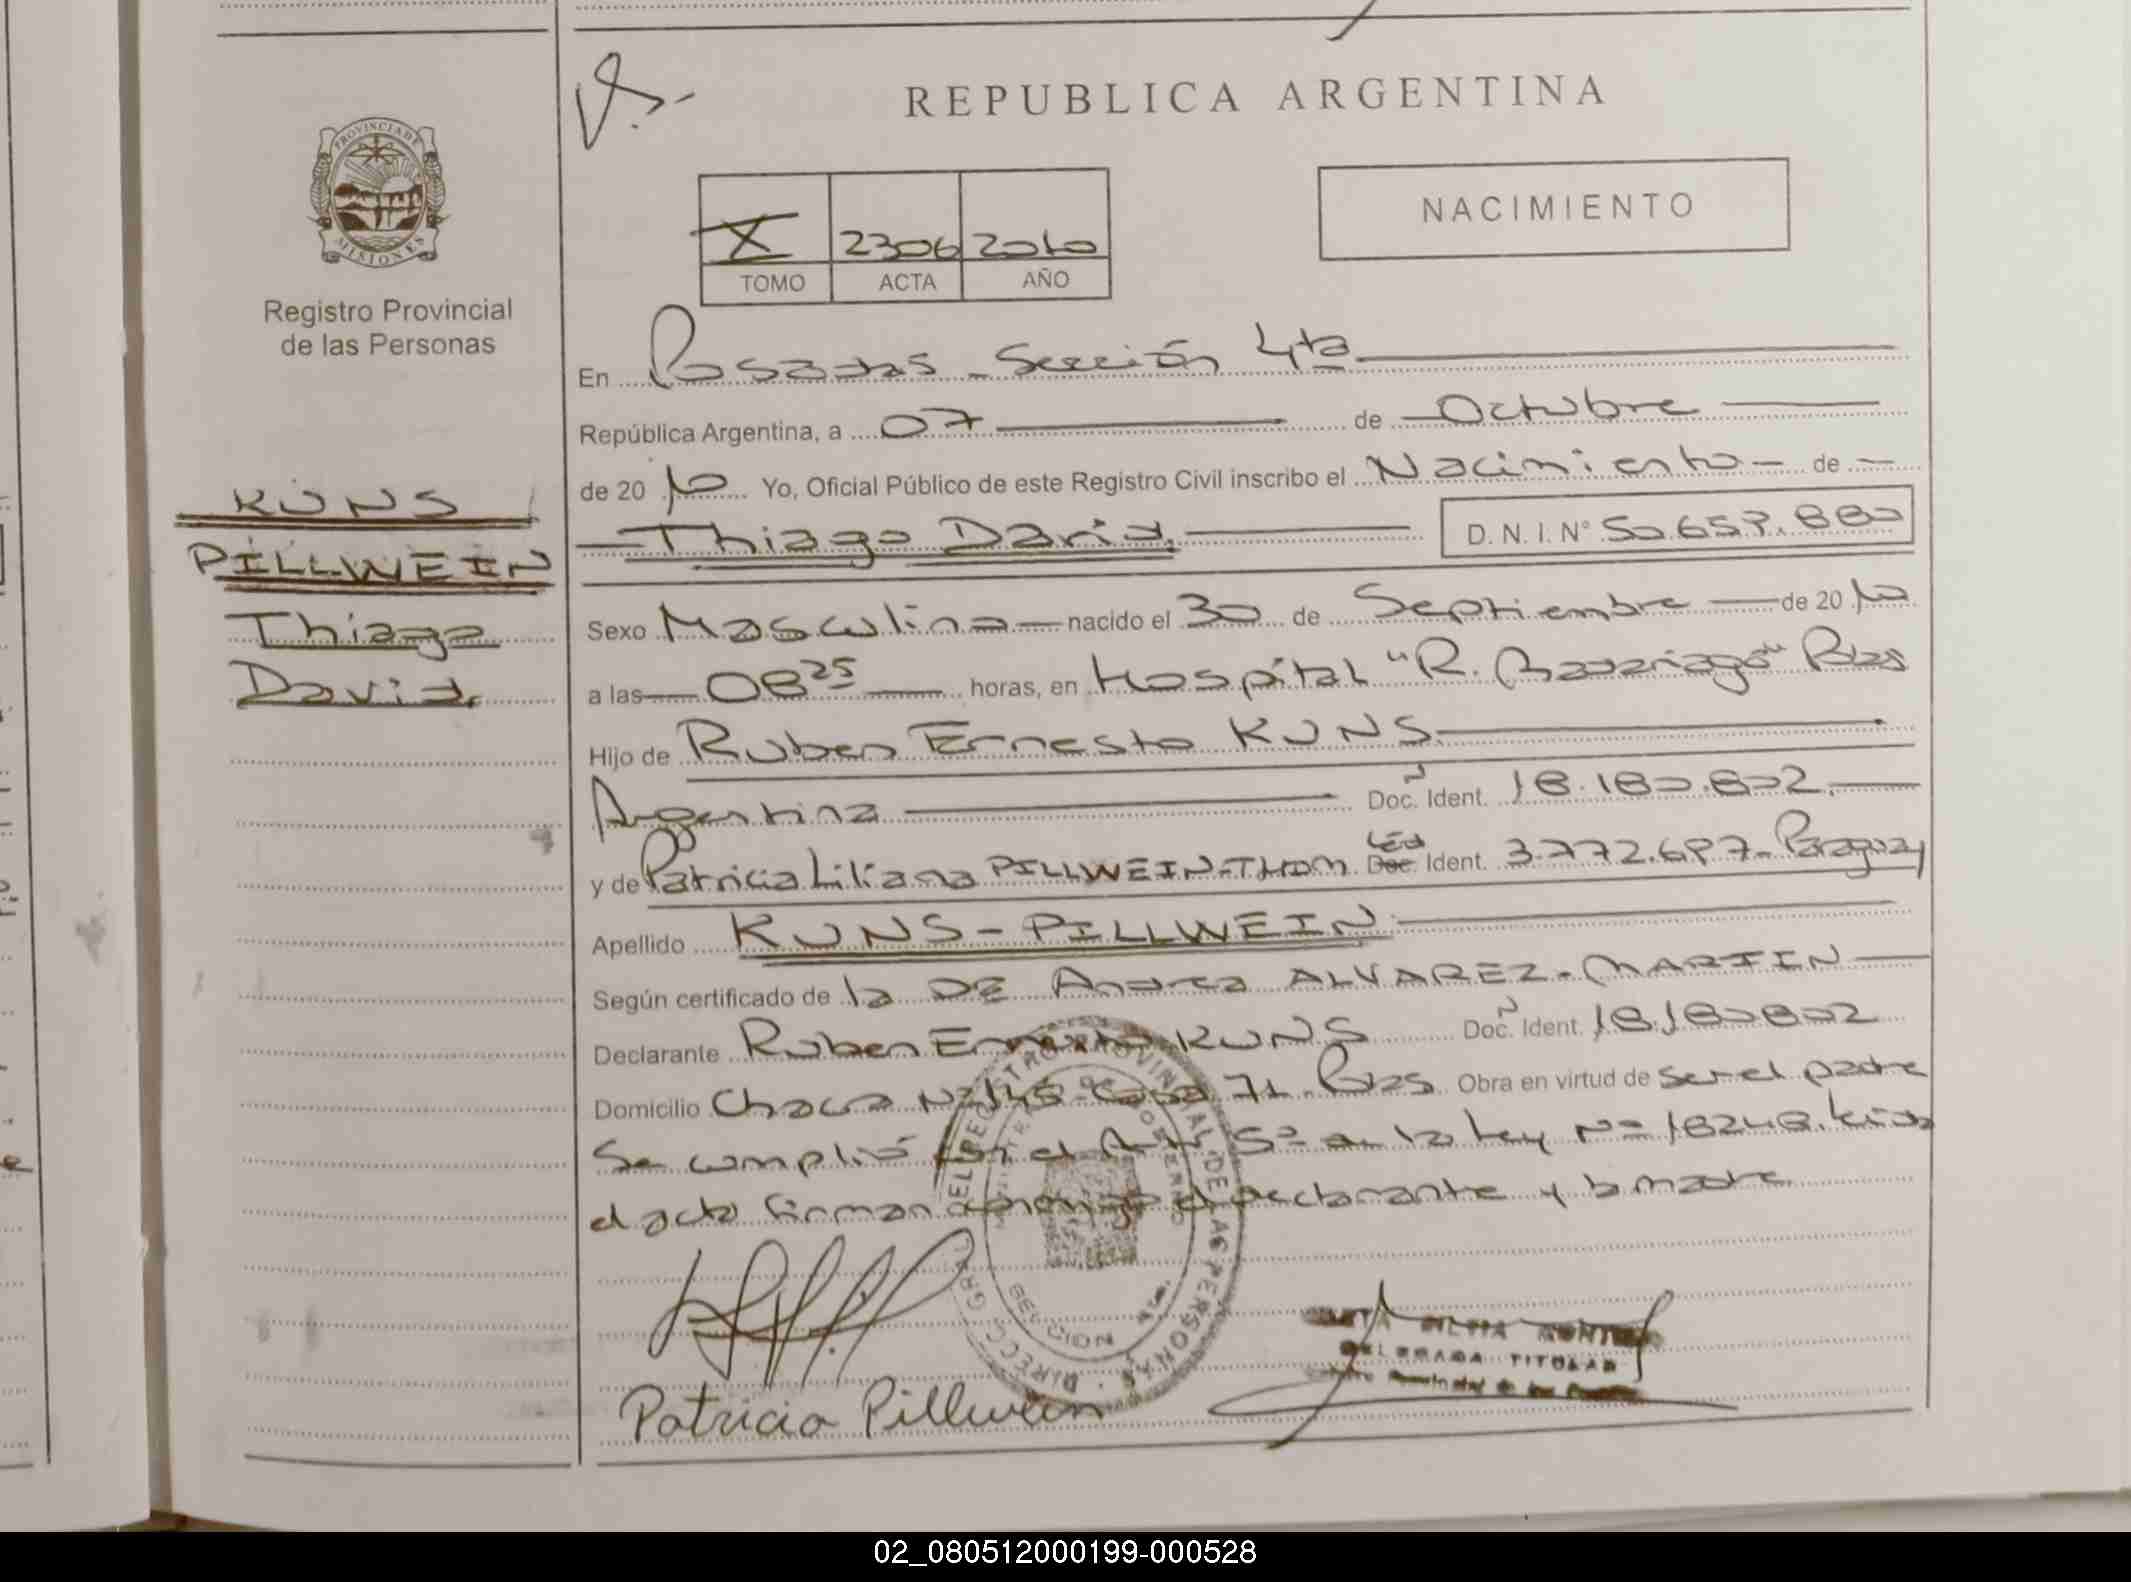 REPUBLICA ARGENTINA
PROVINCIA DE MISIONES
Registro Provincial
de las Personas
X 2306 2010
TOMO ACTA AÑO
NACIMIENTO
En Posadas - Sección 4ta
República Argentina, a 07 de Octubre
de 20 10 Yo, Oficial Público de este Registro Civil inscribo el Nacimiento - de -
Thiago David. D. N. I. N°
KUNS
PILLWEIN
Thiago
David.
Sexo Masculino nacido el 30 de Septiembre de 20 10
a las 08 25 horas, en Hospital "R. Madariaga" Pdas
Hijo de Ruben Ernesto KUNS
Argentina Doc. Ident. 18.180.802.
y de Patricia Liliana PILLWEIN-THOM Ced Doc. Ident. 3.772.697- Paraguay
Apellido KUNS - PILLWEIN
Según certificado de la DE Andrea ALVAREZ - MARTIN
Declarante Ruben Ernesto KUNS Doc. Ident. 18.180.802
Domicilio Chacra N° 145 - Casa 71 - Pdas Obra en virtud de ser el padre
Se cumplió con el Art. 5° de la Ley N° 18248. Leída
el acta firman conmigo el declarante y la madre
Patricia Pillwein
DELEGADA TITULAR
DIRECC. GRAL. DEL REGISTRO PROVINCIAL DE LAS PERSONAS
SECCION 4ta.
02_080512000199-000528